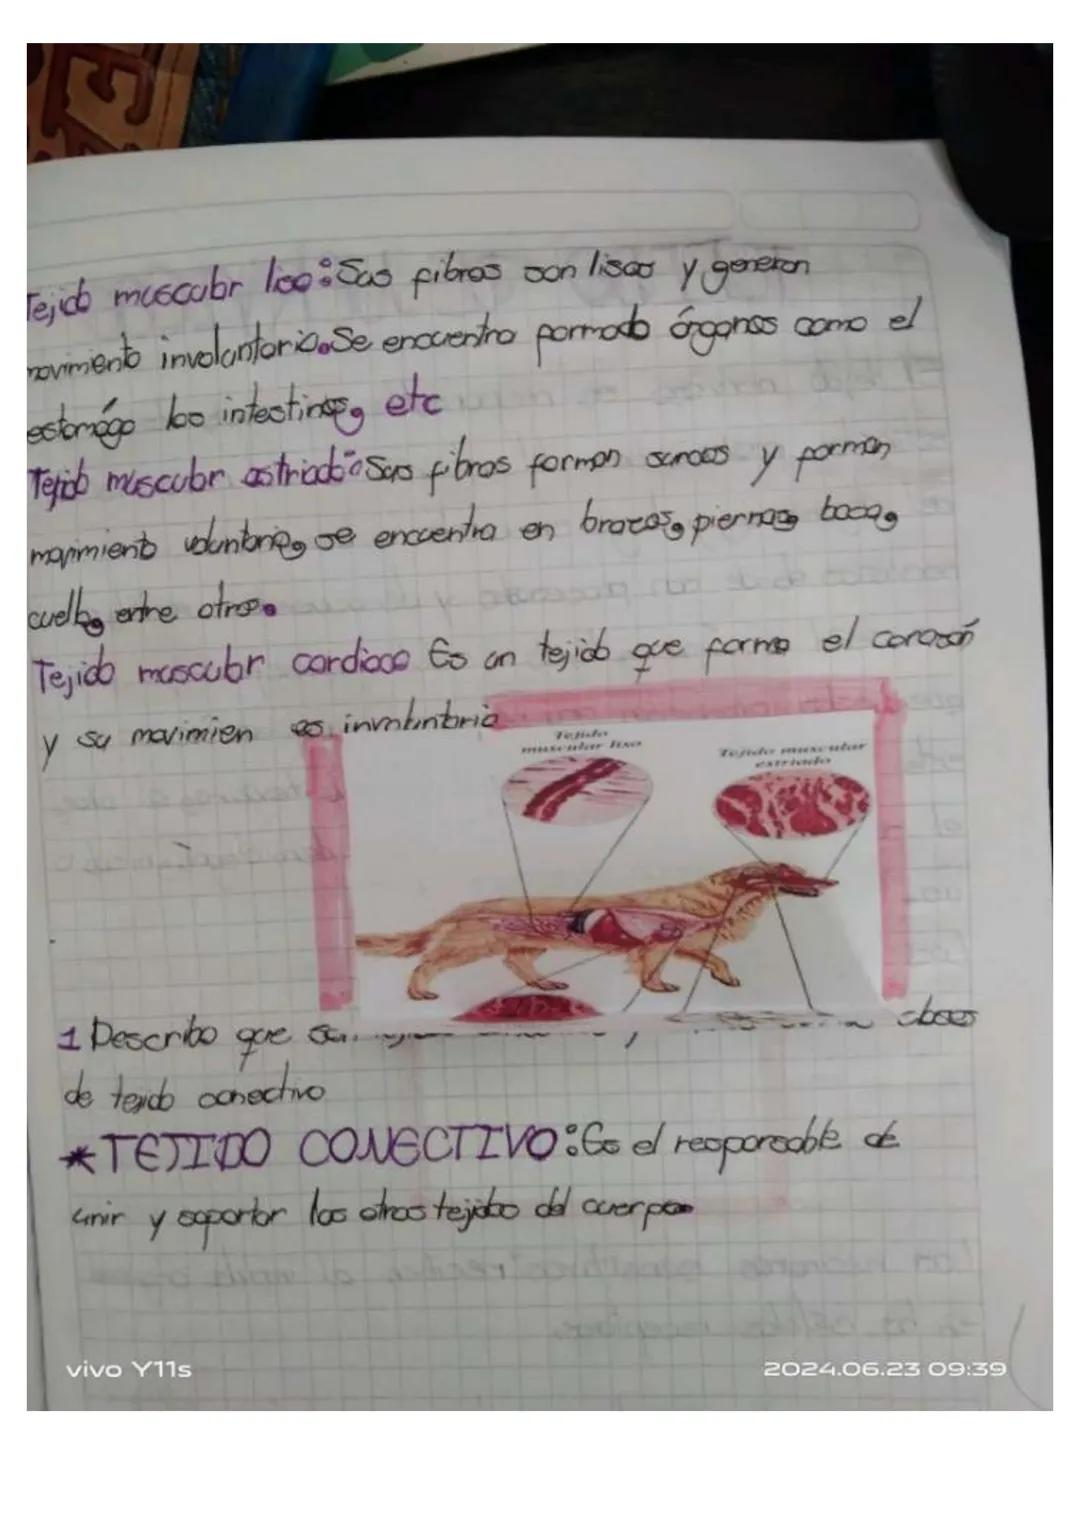 Tejido muscular liso: Sus fibras son lisas y generan
movimiento involuntario. Se encuentra formado órganos como el
estomágo los intestinos, etc
Tejido muscular estriado: Sus fibras forman surcos y forman
movimiento voluntario, se encuentra en brazos, piernas, boca,
cuello, entre otros.
Tejido muscular cardiaco Es un tejido que forma el corazón
y su movimien es involuntario
Tejido
muscular liso
Tejido muscular
estriado
1 Describo que clases
de tejido conectivo
*TEJIDO CONECTIVO: Es el responsable de
unir y soportar los otros tejidos del cuerpo
vivo Y11s
2024.06.23 09:39